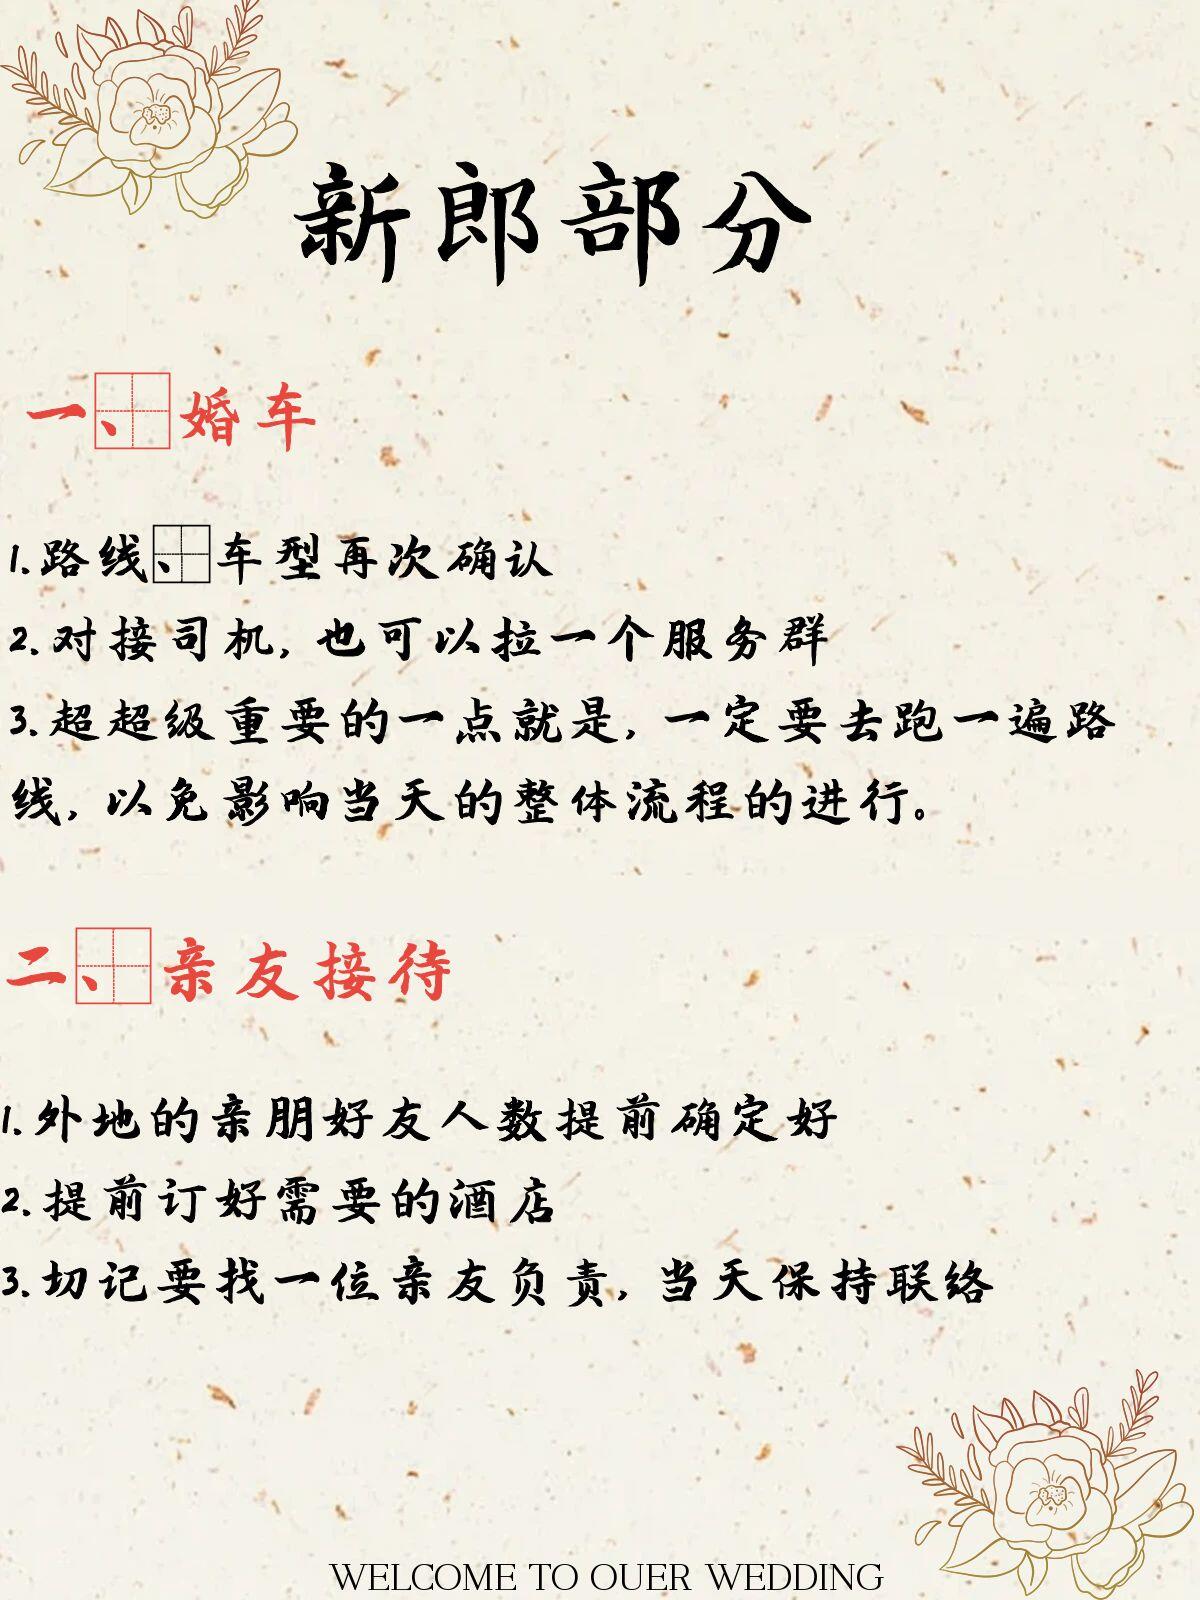 新郎部分
一、婚车
1.路线、车型再次确认
2.对接司机，也可以拉一个服务群
3.超超级重要的一点就是，一定要去跑一遍路
线，以免影响当天的整体流程的进行。
二、亲友接待
1.外地的亲朋好友人数提前确定好
2.提前订好需要的酒店
3.切记要找一位亲友负责，当天保持联络
WELCOME TO OUER WEDDING